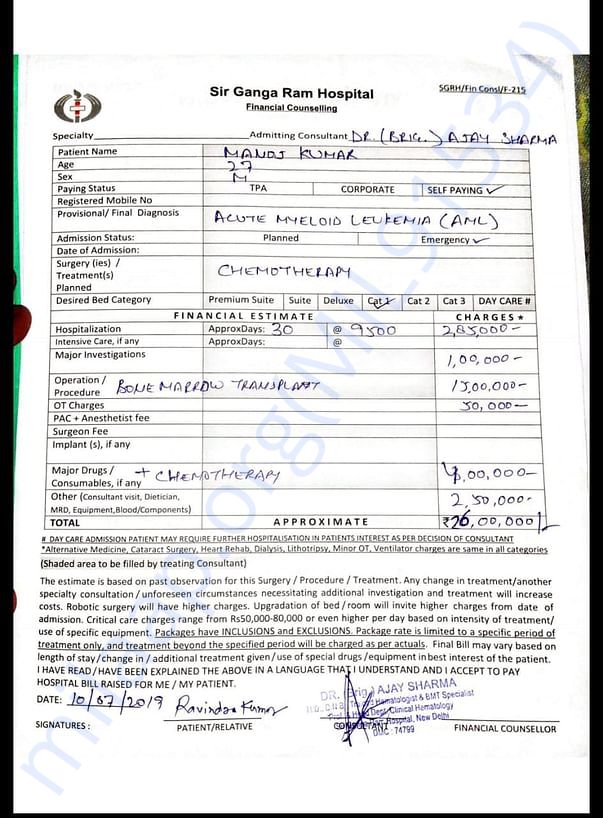 Sir Ganga Ram Hospital
Financial Counselling
SGRH/Fin Consl/F-215
Specialty Admitting Consultant DR. (BRIG.) AJAY SHARMA
Patient Name MANOJ KUMAR
Age 27
Sex M
Paying Status TPA CORPORATE SELF PAYING ✓
Registered Mobile No
Provisional/ Final Diagnosis ACUTE MYELOID LEUKEMIA (AML)
Admission Status: Planned Emergency ✓
Date of Admission:
Surgery (ies) /
Treatment(s) CHEMOTHERAPY
Planned
Desired Bed Category Premium Suite Suite Deluxe Cat 1 ✓ Cat 2 Cat 3 DAY CARE #
FINANCIAL ESTIMATE CHARGES *
Hospitalization ApproxDays: 30 @ 9500 2,85000-
Intensive Care, if any ApproxDays: @
Major Investigations 1,00,000-
Operation /
Procedure BONE MARROW TRANSPLANT 15,00,000-
OT Charges 50,000-
PAC + Anesthetist fee
Surgeon Fee
Implant (s), if any
Major Drugs /
Consumables, if any + CHEMOTHERAPY 4,00,000-
Other (Consultant visit, Dietician,
MRD, Equipment,Blood/Components) 2,50,000-
TOTAL APPROXIMATE ₹26,00,000/-
# DAY CARE ADMISSION PATIENT MAY REQUIRE FURTHER HOSPITALISATION IN PATIENTS INTEREST AS PER DECISION OF CONSULTANT
*Alternative Medicine, Cataract Surgery, Heart Rehab, Dialysis, Lithotripsy, Minor OT, Ventilator charges are same in all categories
(Shaded area to be filled by treating Consultant)
The estimate is based on past observation for this Surgery / Procedure / Treatment. Any change in treatment/another
specialty consultation / unforeseen circumstances necessitating additional investigation and treatment will increase
costs. Robotic surgery will have higher charges. Upgradation of bed / room will invite higher charges from date of
admission. Critical care charges range from Rs50,000-80,000 or even higher per day based on intensity of treatment/
use of specific equipment. Packages have INCLUSIONS and EXCLUSIONS. Package rate is limited to a specific period of
treatment only, and treatment beyond the specified period will be charged as per actuals. Final Bill may vary based on
length of stay / change in / additional treatment given / use of special drugs / equipment in best interest of the patient.
I HAVE READ / HAVE BEEN EXPLAINED THE ABOVE IN A LANGUAGE THAT I UNDERSTAND AND I ACCEPT TO PAY
HOSPITAL BILL RAISED FOR ME / MY PATIENT.
DR. (Brig.) AJAY SHARMA
Hematologist & BMT Specialist
Clinical Hematology
Hospital, New Delhi
DMC : 74799
DATE: 10/07/2019 Ravinder Kumar
SIGNATURES : PATIENT/RELATIVE CONSULTANT FINANCIAL COUNSELLOR